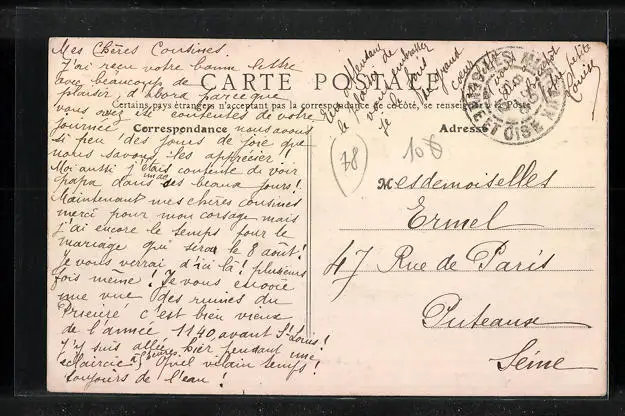 Mes Chères Cousines.
J'ai reçu votre bonne lettre
avec beaucoup de
plaisir, d'abord parceque
vous avez été contentes de votre
journée nous avons
si peu des jours de joie que
nous savons les apprécier!
Moi aussi j'étais contente de voir
papa dans ses beaux jours!
Maintenant mes chères cousines
merci pour mon corsage mais
j'ai encore le temps pour le
mariage qui sera le 8 août!
Je vous verrai d'ici là! plusieurs
fois même! Je vous envoie
une vue des ruines du
Prieuré c'est bien vieux
de l'année 1140, avant St Louis!
J'y suis allée hier pendant une
éclaircie vilain temps!
toujours de l'eau!
En attendant
le plaisir de
vous embrasser
je vous
CARTE POSTALE
Certains pays étrangers n'acceptant pas la correspondance de ce côté, se renseigner à la Poste
Correspondance
Adresse
(78)
108
Mesdemoiselles
Ermel
47 Rue de Paris
Puteaux
Seine